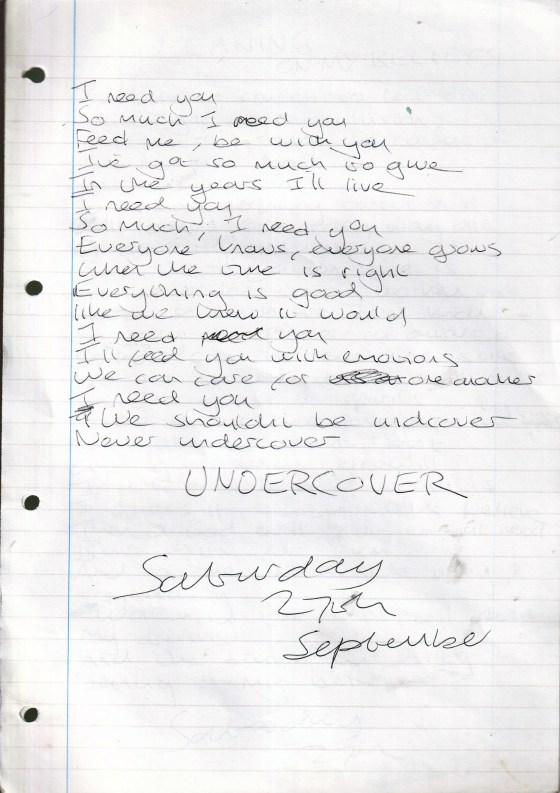 I need you
So much I need you
Feed me, be with you
I've got so much to give
In the years I'll live
I need you
So much, I need you
Everyone knows, everyone grows
When the time is right
Everything is good
like we knew it would
I need you
I'll feed you with emotions
We can care for one another
I need you
We shouldn't be undcover
Never undercover
UNDERCOVER
Saturday
27th
September